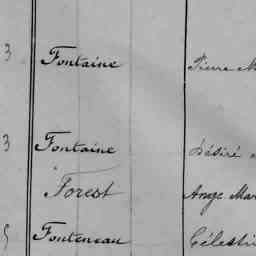 3 Fontaine Pierre M
3 Fontaine Désiré
Forest Ange Mar
5 Fonteneau Célesti